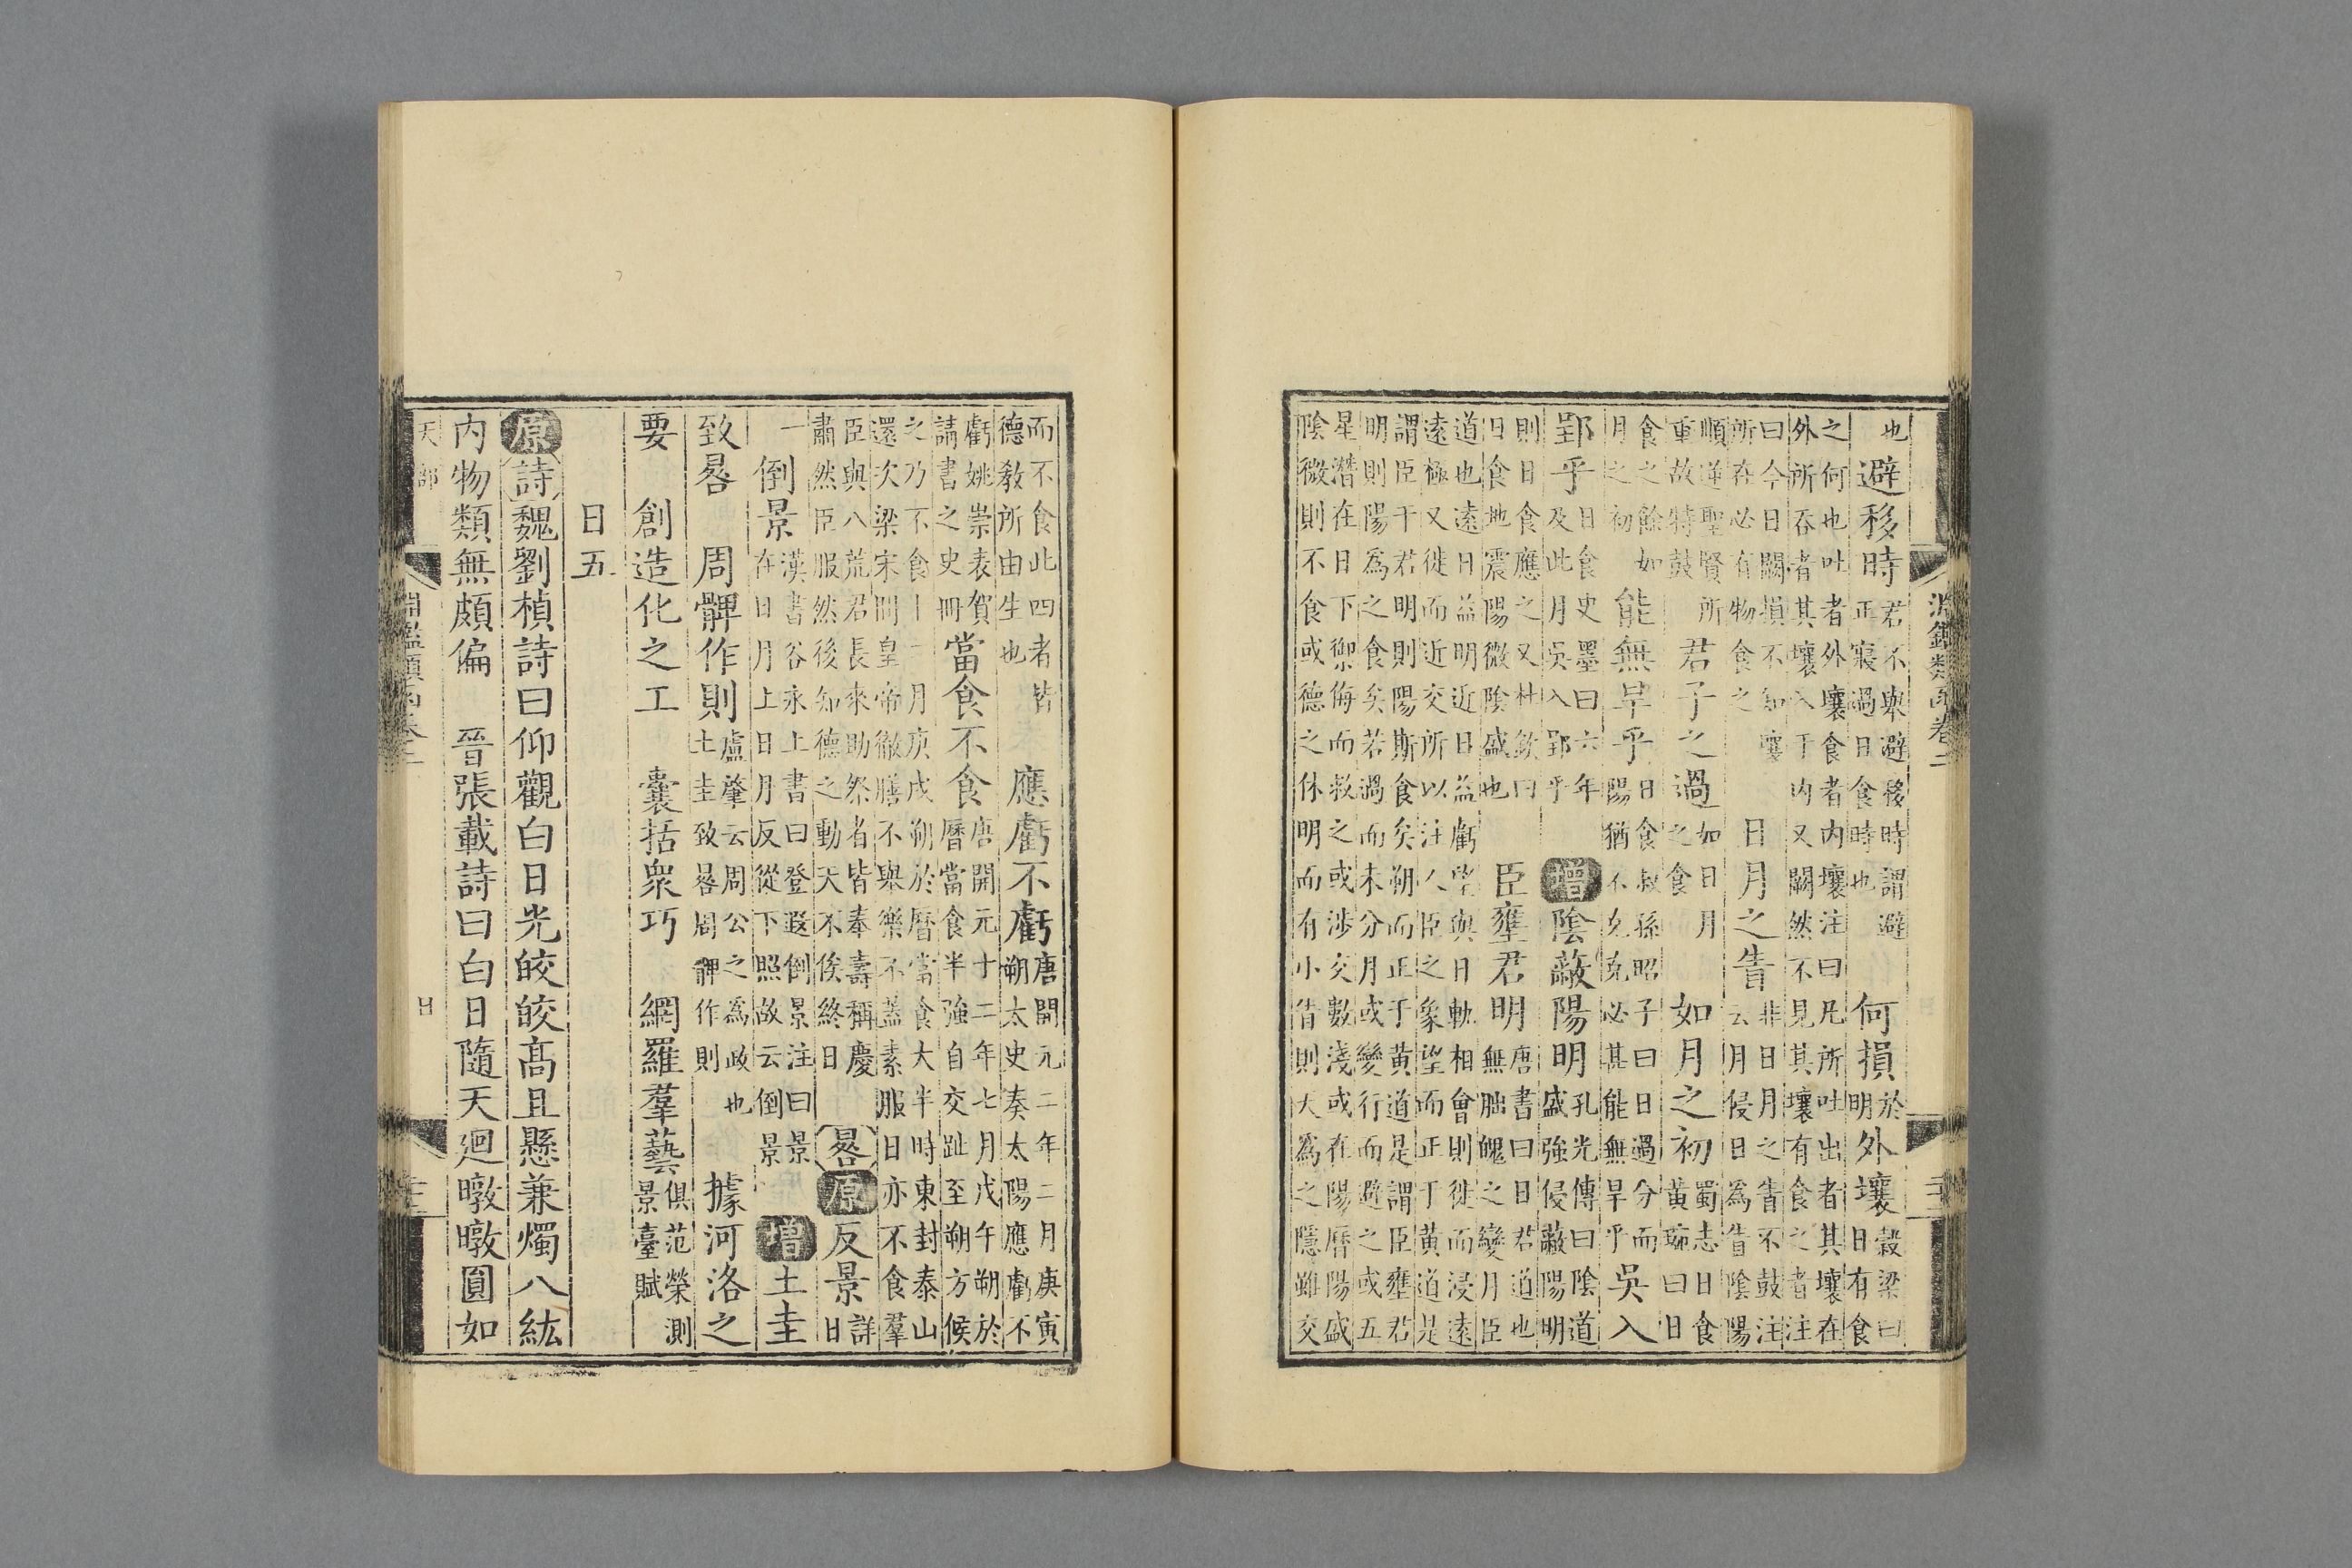 淵鑑類函卷二
也 避移時 君不舉避移時謂避
正寢過日食時也 何損 於
明 外壤 穀梁曰
日有食
之何也吐者外壤食者内壤注曰凡所吐出者其壤在
外所吞者其壤入于内又闕然不見其壤有食之者注
曰今日闕損不知壤
所在必有物食之 日月之眚 非日月之眚不鼓注
云月侵日為眚陰陽
順逆聖賢所
重故特鼓 君子之過 如日月
之食 如月之初 蜀志日食
黄琬曰日
食之餘如
月之初 能無旱乎 日食叔孫昭子曰日過分而
陽猶不克克必甚能無旱乎 吳入
郢乎 日食史墨曰六年
及此月吳入郢乎 增 陰蔽陽明 孔光傳曰陰道
盛強侵蔽陽明
則日食應之又杜欽曰
日食地震陽微陰盛也 臣壅君明 唐書曰日君道也
無朏魄之變月臣
道也遠日益明近日益虧望與日軌相會則徙而浸遠
遠極又徙而近交所以注人臣之象望而正于黄道是
謂臣干君明則陽斯食矣朔而正于黄道是謂臣壅君
明則陽為之食矣若過而未分月或變行而避之或五
星潛在日下禦侮而救之或涉交數淺或在陽曆陽盛
陰微則不食或德之休明而有小眚則天為之隱雖交
而不食此四者皆
德教所由生也 應虧不虧 唐開元二年二月庚寅
朔太史奏太陽應虧不
虧姚崇表賀
請書之史冊 當食不食 唐開元十二年七月戊午朔於
曆當食半強自交趾至朔方候
之乃不食十二月庚戌朔於曆當食大半時東封泰山
還次梁宋間皇帝徹膳不舉樂不蓋素服日亦不食羣
臣與八荒君長來助祭者皆奉壽稱慶
肅然臣服然後知德之動天不俟終日 晷 原 反景 詳
日
一 倒景 漢書谷永上書曰登遐倒景注曰景
在日月上日月反從下照故云倒景 增 土圭
致晷 周髀作則 盧肇云周公之為政也
土圭致晷周髀作則 據河洛之
要 創造化之工 囊括衆巧 網羅羣藝 俱范榮測
景臺賦
日五
原 詩 魏劉楨詩曰仰觀白日光皎皎高且懸兼燭八紘
内物類無頗偏 晉張載詩曰白日隨天廻暾暾圓如
天部 日
淵鑑類函卷二